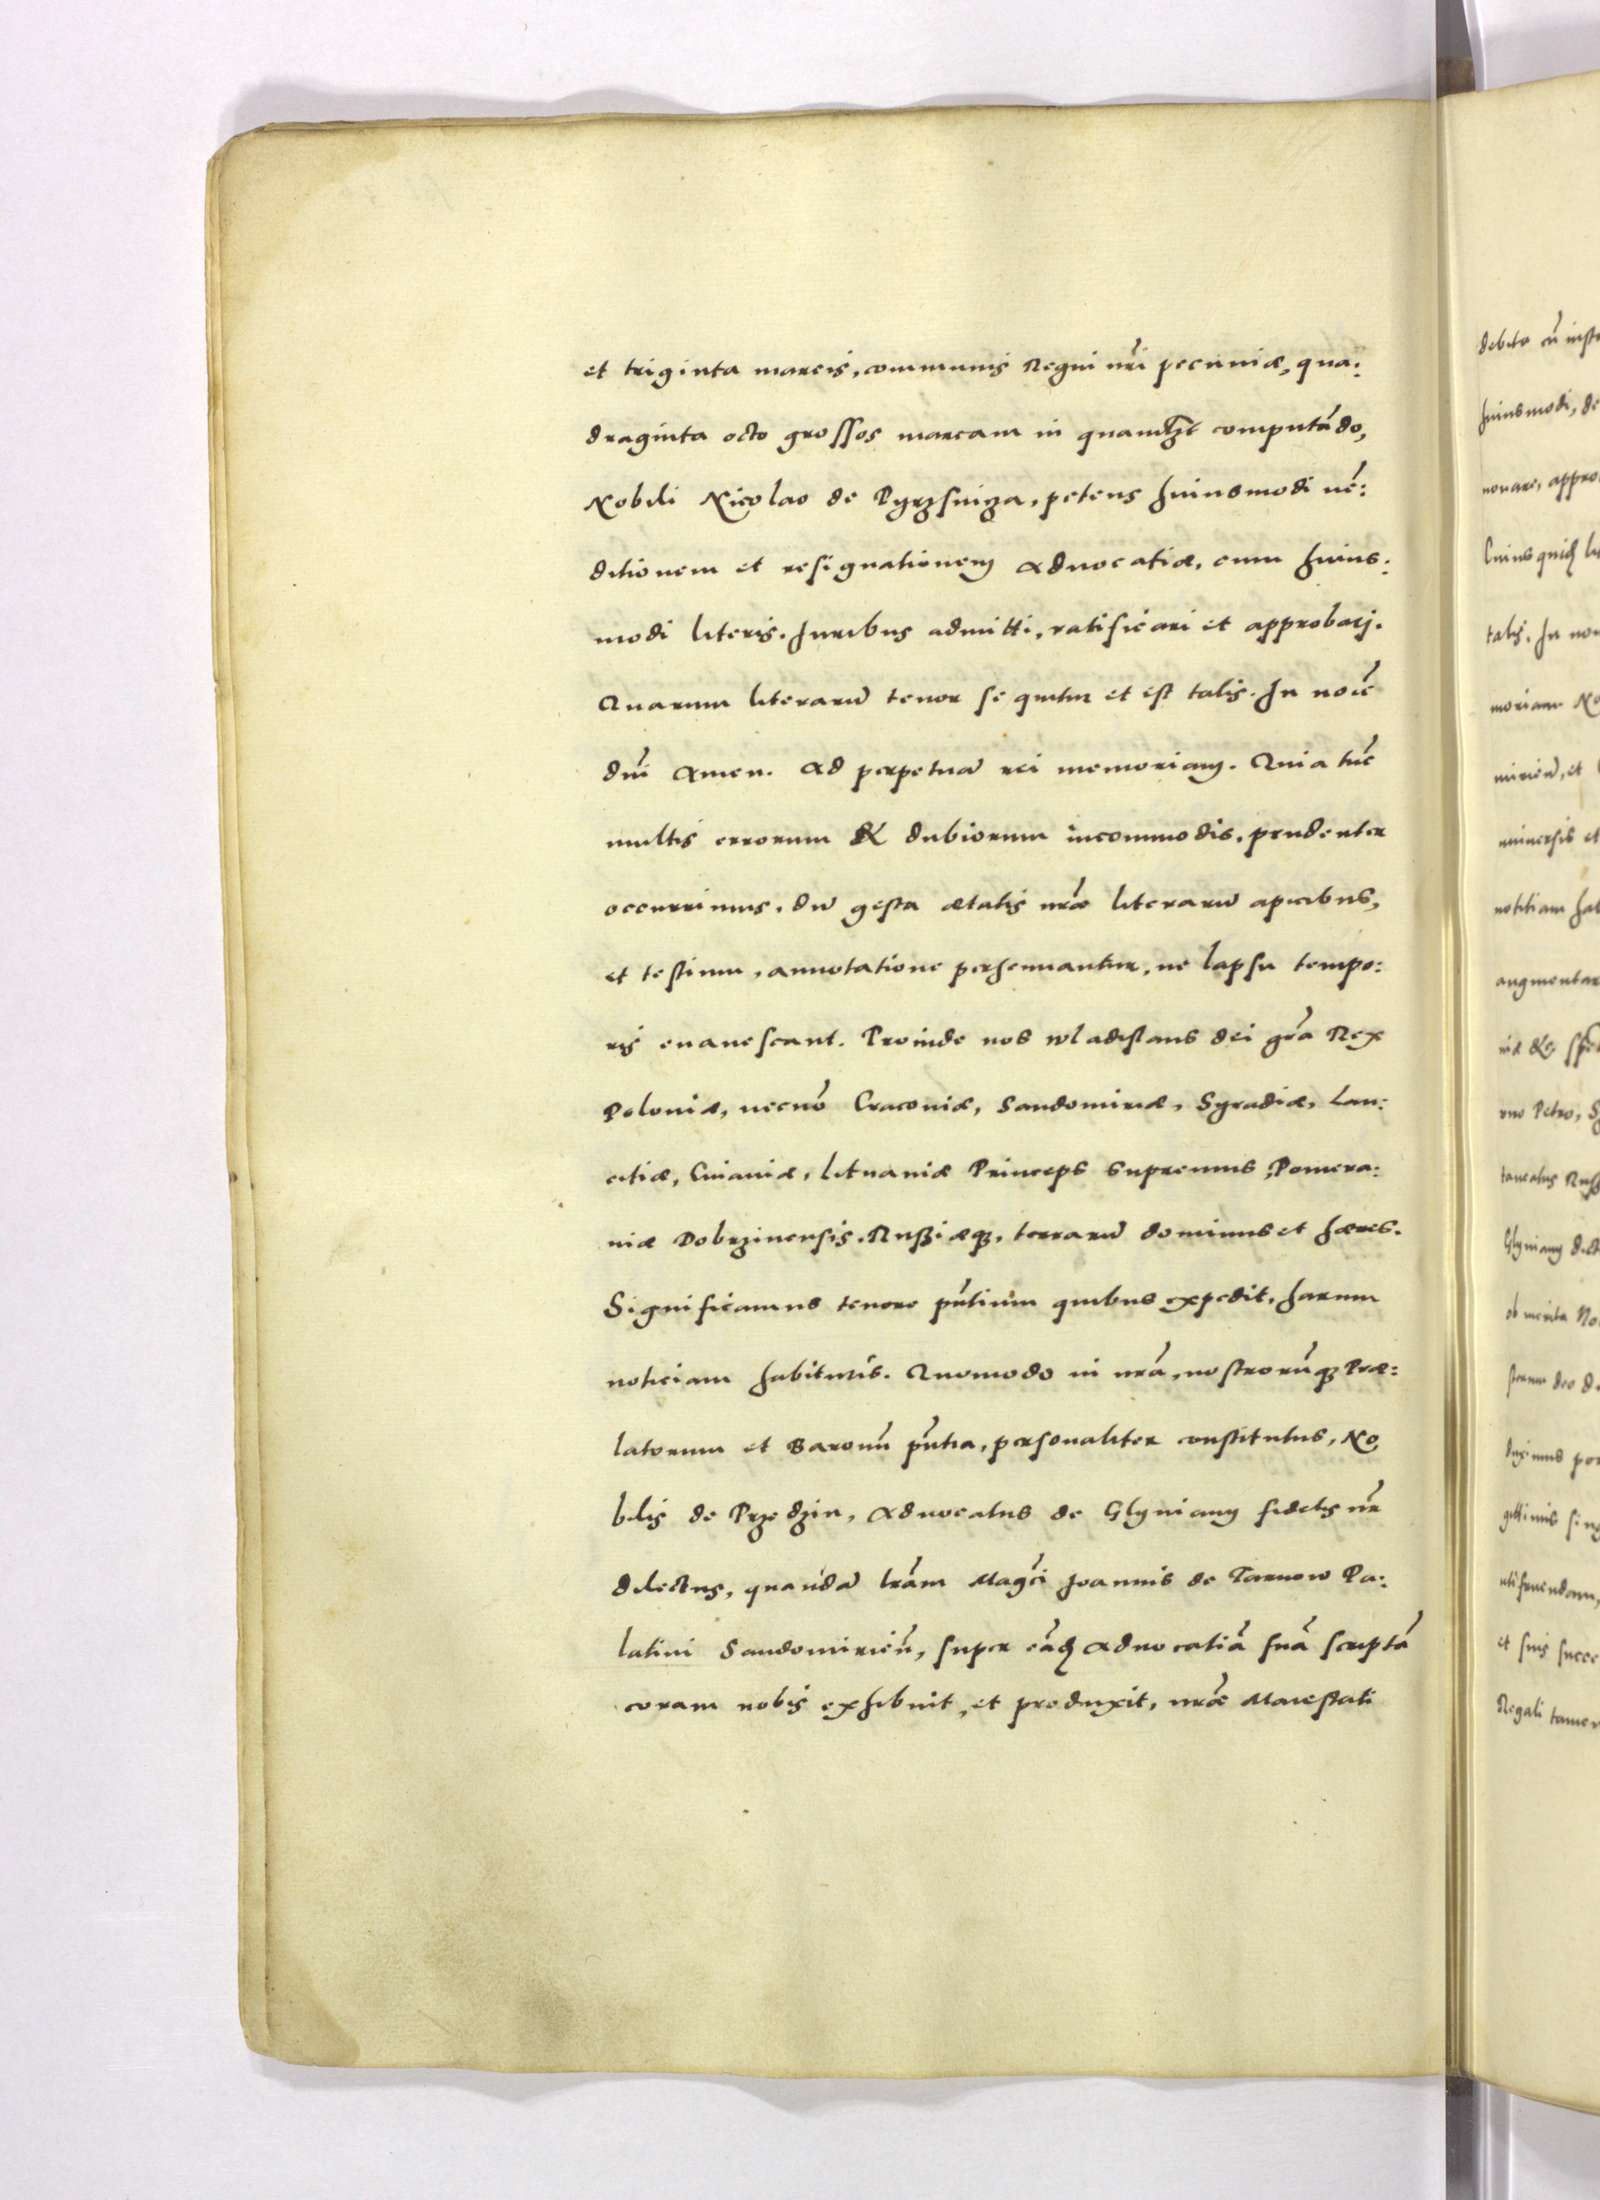 et triginta marcis, communis Regni nr̃i pecuniæ, qua:
draginta octo grossos marcam in quamlibet computãdo,
Nobili Nicolao de Pyrzsniza, petens huiusmodi uẽ:
ditionem et resignationem Aduocatiæ, cum huius:
modi literis. Iuribus admitti, ratificari et approbarj.
Quarum literarũ tenor sequitur et est talis. In noĩe
dnĩ Amen. Ad perpetuã rei memoriam. Quia tũc
multis errorum & dubiorum incommodis, prudenter
occurrimus, dũ gesta ætatis nr̃æ literarũ apicibus,
et testium, annotatione perhennantur, ne lapsu tempo:
ris euanescant. Proinde nos wladislaus dei gr̃a Rex
Poloniæ, necnõ Cracouiæ, Sandomiriæ, Syradiæ, Lan:
citiæ, Cuiauiæ, Lituaniæ Princeps supremus, Pomera:
niæ Dobrzinensis, Russiæq3, terrarũ dominus et hæres.
Significamus tenore pñtium quibus expedit, harum
noticiam habituris. Quomodo in nr̃a, nostrorũq3 Præ:
latorum et Baronũ pñtia, personaliter constitutus, No
bilis de Przedzin, Aduocatus de Glyniany fidelis nr̃
dilectus, quandã lr̃am Magcĩ Joannis de Tarnow Pa:
latini Sandomirieñ, super eãd Aduocatiã suã scriptã
coram nobis exhibuit, et produxit, nr̃æ Maiestati
debito
huiusmodi, de
nouare, appro
talis. In
moriam
uniuersis et
notitiam
augmentar
Glyniany
ob merita
et suis succe
Regali tamen